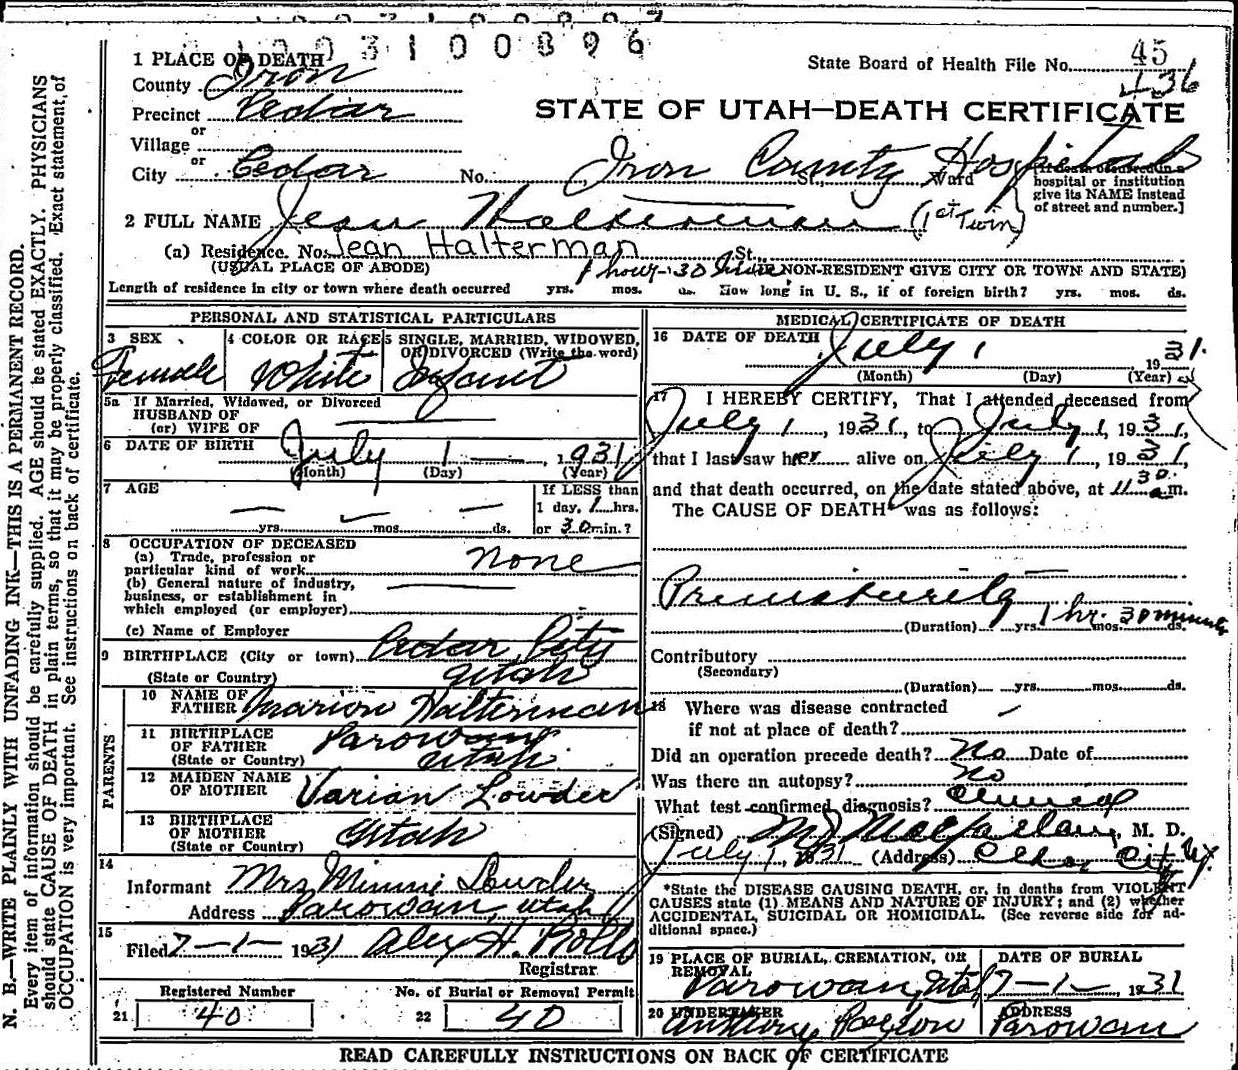 1003100896
1 PLACE OF DEATH
County Iron
State Board of Health File No. 45
436
Precinct Cedar
STATE OF UTAH—DEATH CERTIFICATE
or
Village
or
City Cedar No. Iron County Hospital St., Ward
[If death occurred in a
hospital or institution
give its NAME instead
of street and number.]
2 FULL NAME Jean Halterman (1st Twin)
(a) Residence. No. Jean Halterman St.
(USUAL PLACE OF ABODE) (IF NON-RESIDENT GIVE CITY OR TOWN AND STATE)
1 hour-30
Length of residence in city or town where death occurred yrs. mos. ds. How long in U. S., if of foreign birth? yrs. mos. ds.
PERSONAL AND STATISTICAL PARTICULARS
3 SEX
Female
4 COLOR OR RACE
White
5 SINGLE, MARRIED, WIDOWED,
OR DIVORCED (Write the word)
Infant
5a If Married, Widowed, or Divorced
HUSBAND OF
(or) WIFE OF
6 DATE OF BIRTH July 1 1931
(Month) (Day) (Year)
7 AGE
yrs. mos. ds.
If LESS than
1 day, 1 hrs.
or 30 min.?
8 OCCUPATION OF DECEASED
(a) Trade, profession or
particular kind of work none
(b) General nature of industry,
business, or establishment in
which employed (or employer)
(c) Name of Employer
9 BIRTHPLACE (City or town) Cedar City
(State or Country) Utah
PARENTS
10 NAME OF
FATHER Marion Halterman
11 BIRTHPLACE
OF FATHER Parowan
(State or Country) Utah
12 MAIDEN NAME
OF MOTHER Varian Lowder
13 BIRTHPLACE
OF MOTHER
(State or Country) Utah
14
Informant Mrs Minnie Lowder
Address Parowan, Utah
15
Filed 7-1-1931 Alex H. Rollo
Registrar
Registered Number
21 40
No. of Burial or Removal Permit
22 40
MEDICAL CERTIFICATE OF DEATH
16 DATE OF DEATH July 1 1931.
(Month) (Day) (Year)
17 I HEREBY CERTIFY, That I attended deceased from
July 1, 1931, to July 1, 1931,
that I last saw her alive on July 1, 1931,
and that death occurred, on the date stated above, at 11 30 a.m.
The CAUSE OF DEATH* was as follows:
Prematurity
(Duration) yrs. mos. ds. 1 hr. 30 minutes
Contributory
(Secondary)
(Duration) yrs. mos. ds.
18 Where was disease contracted
if not at place of death?
Did an operation precede death? No Date of
Was there an autopsy? No
What test confirmed diagnosis? Clinical
(Signed) M J Macfarlane, M. D.
July 1, 1931 (Address) Cedar City Ut.
*State the DISEASE CAUSING DEATH, or, in deaths from VIOLENT
CAUSES state (1) MEANS AND NATURE OF INJURY; and (2) whether
ACCIDENTAL, SUICIDAL OR HOMICIDAL. (See reverse side for ad-
ditional space.)
19 PLACE OF BURIAL, CREMATION, OR
REMOVAL
Parowan, Utah
DATE OF BURIAL
7-1-, 1931
20 UNDERTAKER
Anthony Paxton
ADDRESS
Parowan
READ CAREFULLY INSTRUCTIONS ON BACK OF CERTIFICATE
N. B.—WRITE PLAINLY WITH UNFADING INK—THIS IS A PERMANENT RECORD.
Every item of information should be carefully supplied. AGE should be stated EXACTLY. PHYSICIANS
should state CAUSE OF DEATH in plain terms, so that it may be properly classified. Exact statement of
OCCUPATION is very important. See instructions on back of certificate.